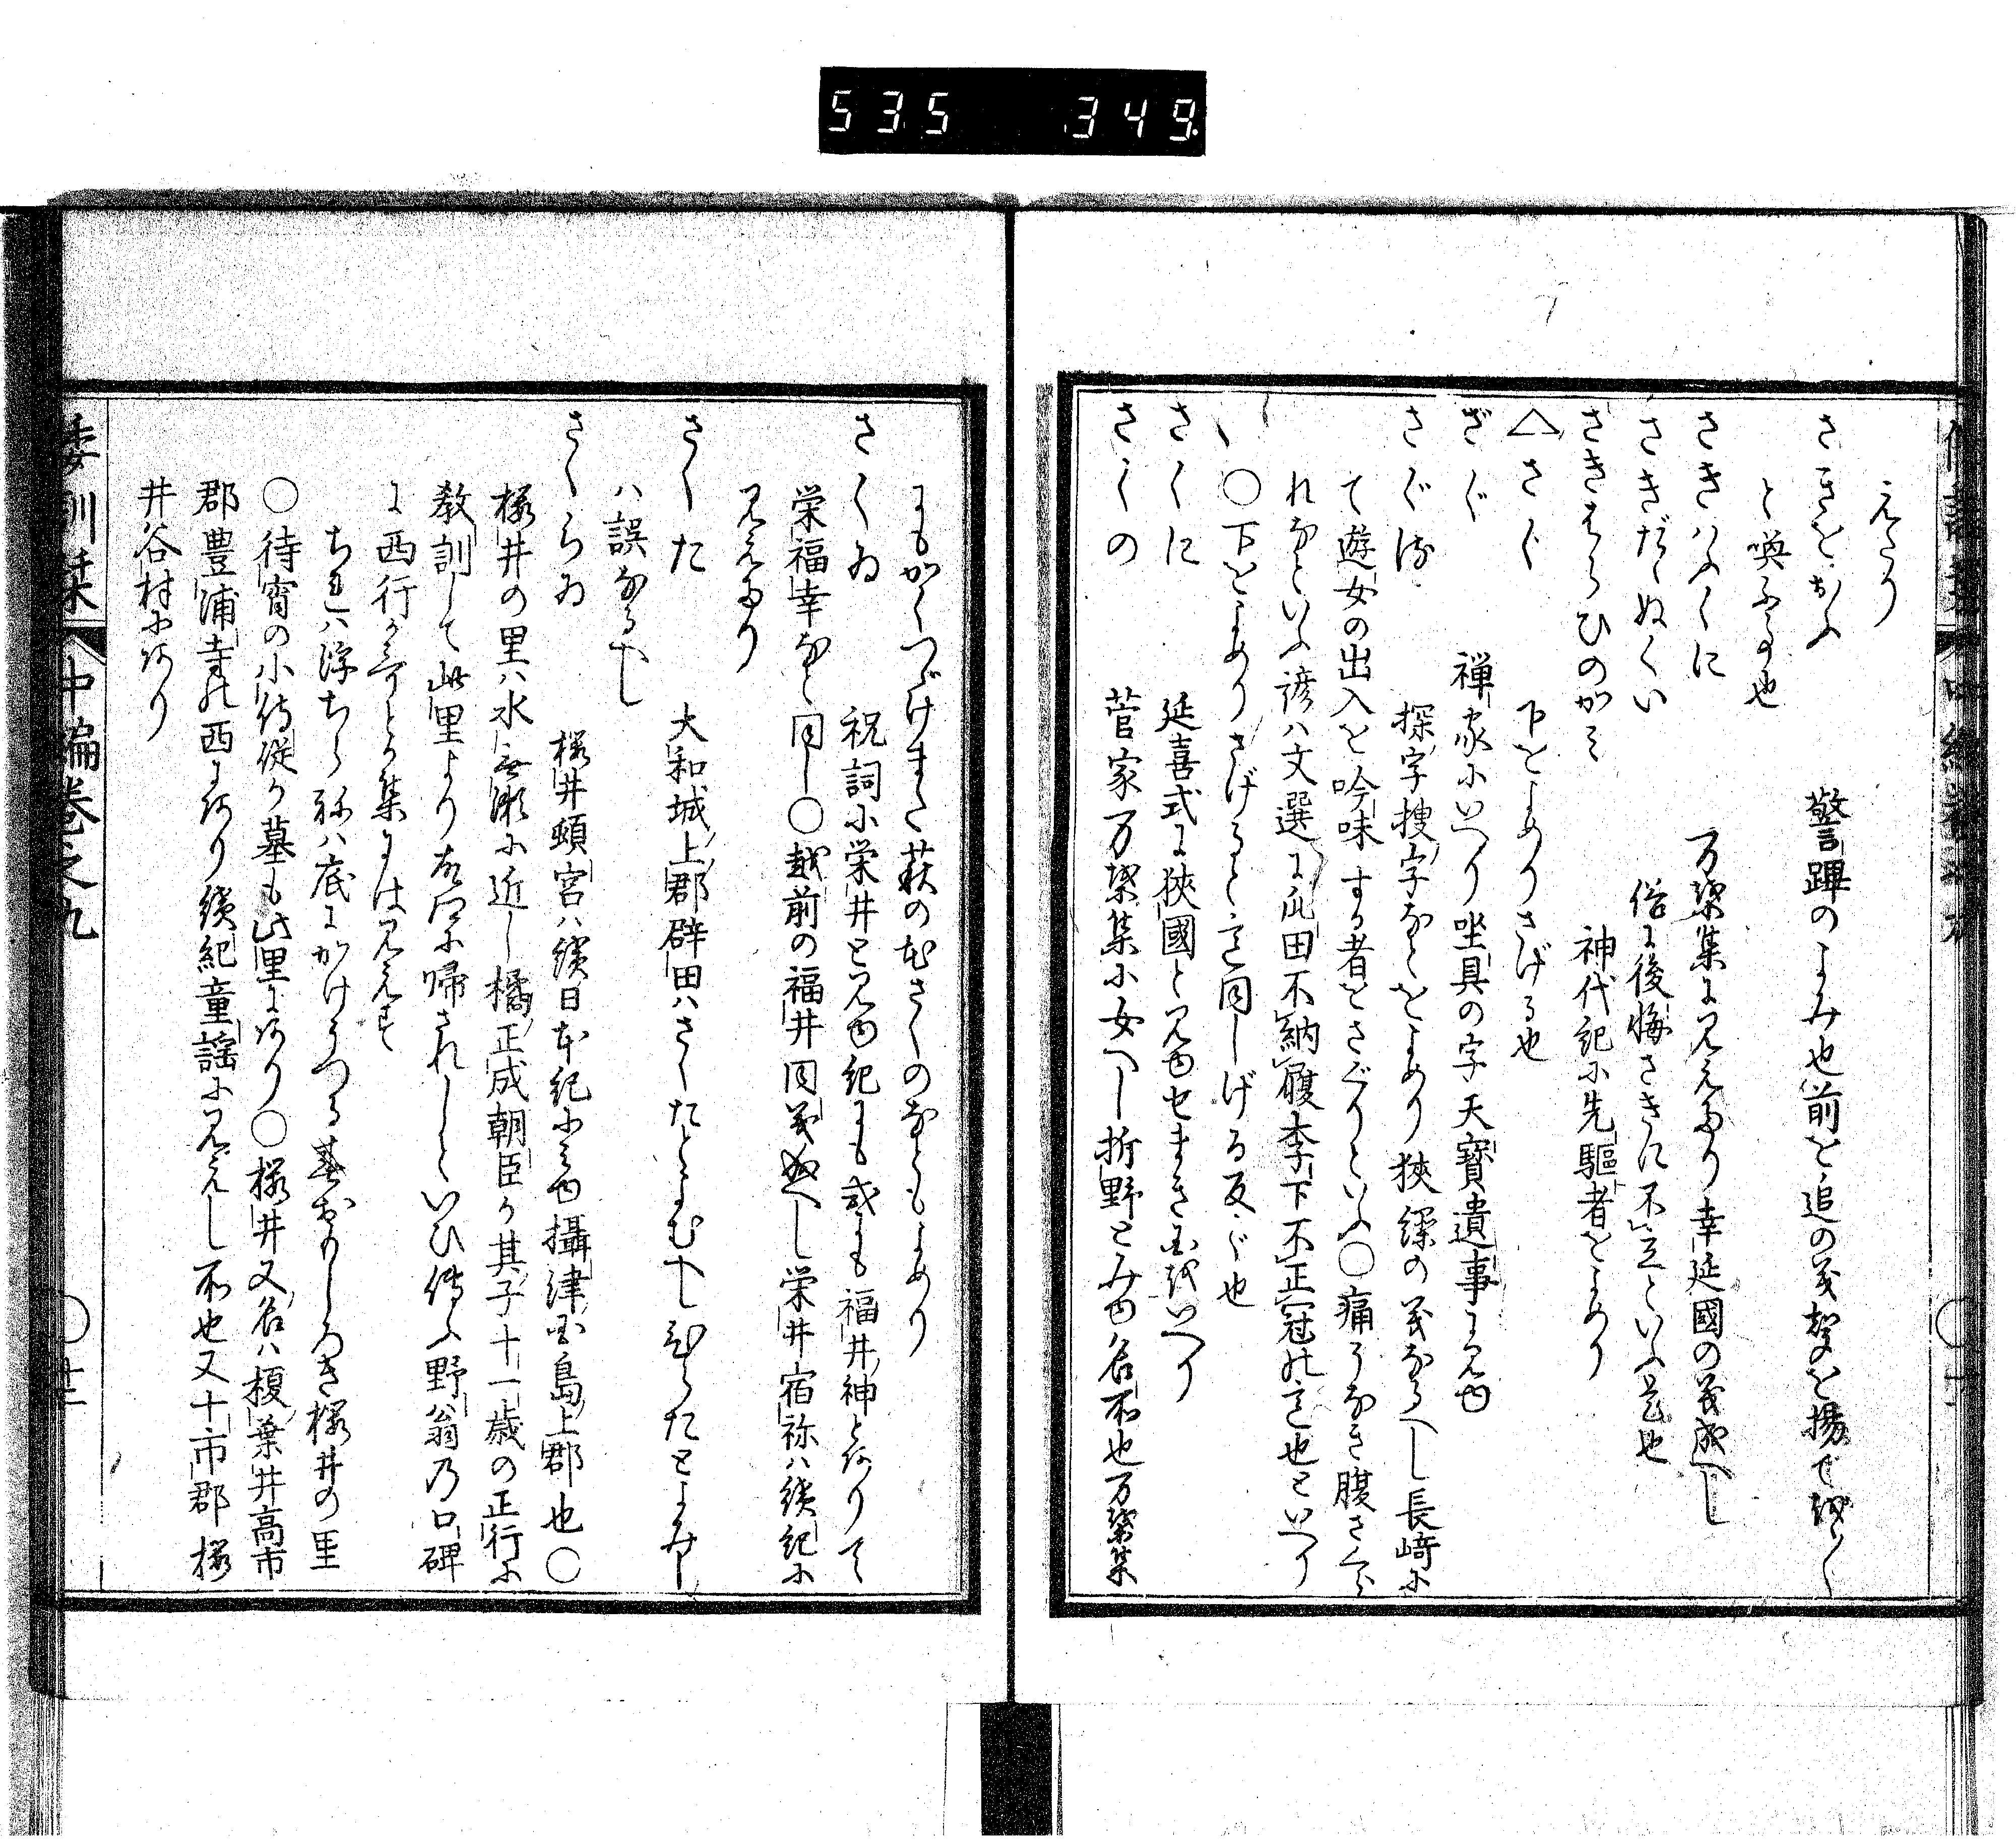 535 349
えたり
さきをおふ 警蹕のよみ也前を追の義聲を揚て
と喚ふる也
さきはふくに 万葉集に見えたり幸延國の義成へし
さきだゝぬくい 俗に後悔さきに不立といふ是也
さきはらひのかミ 神代記に先驅者をよめり
△さぐ 下をよめりさげる也
ざぐ 禅家にいへり坐具の字天寳遺事に見ゆ
さぐる 探字捜字なとをよめり狹繰の義なるへし長崎に
て遊女の出入を吟味する者をさぐりといふ○痛うなき腹さくら
れなといふ諺ハ文選に瓜田不納履李下不正冠の意也といへり
○下をよめりさげると同しげる反ぐ也
さくに 延喜式に狹國と見ゆせまき国をいへり
さくの 菅家万葉集に女へし折野とみゆ名所也万葉集
にもかくつゞけまた萩の なともよめり
さくゐ 祝詞に栄井と見ゆ紀にも或にも福井神とありて
栄福幸なと同し○越前の福井同義成へし栄井宿祢ハ續紀に
見えたり
さくた 大和城上郡辟田ハさくたとよむへしひらたとよみし
ハ誤なるへし
さくらゐ 桜井頓宮ハ續日本紀にみゆ攝津国島上郡也○
桜井の里ハ水無瀬に近し橘正成朝臣か其子十一歳の正行に
教訓して此里より古郷に帰されしといひ傳ふ野翁乃口碑
に西行か哥とか集にハ見えす
ちれハ浮ちらねハ底にかけうつる春おもしろき桜井の里
○待宵の小侍従か墓も此里にあり○桜井又名ハ榎葉井高市
郡豊浦寺の西にあり續紀童謡に見えし所也又十市郡桜
井谷村にあり
倭訓栞 中編巻之九 廿一